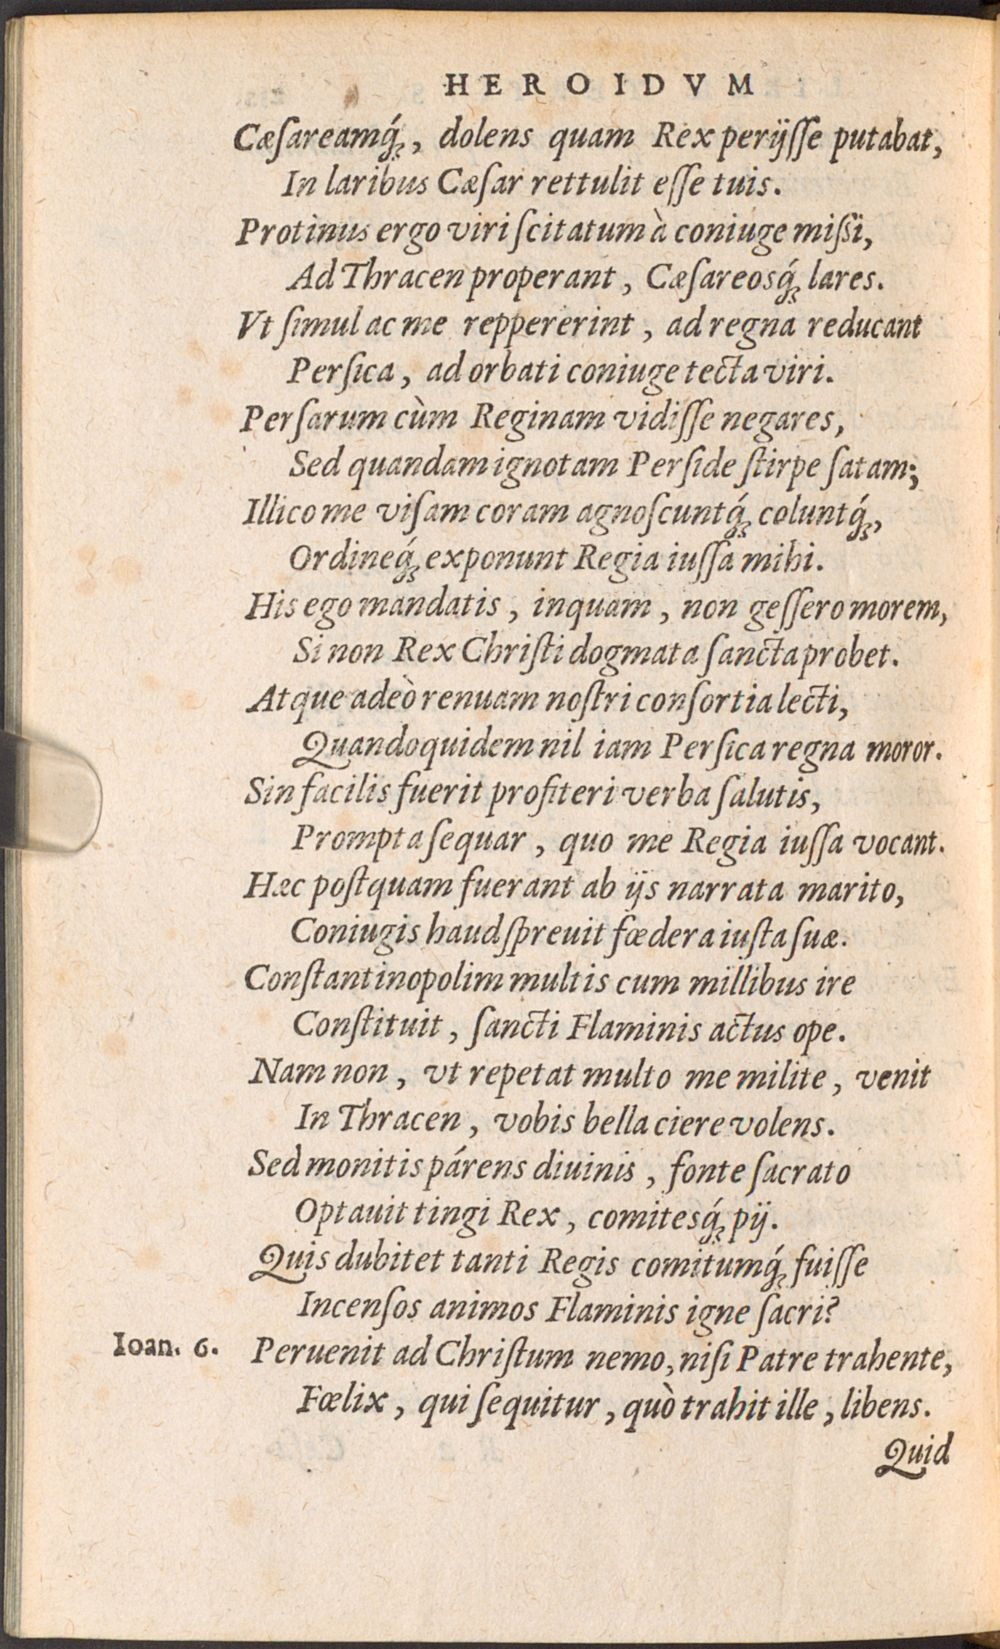 HEROIDVM
Cæſareamq́ꝫ, dolens quam Rex perijſſe putabat,
In laribus Cæſar rettulit eſſe tuis.
Protinus ergo viri ſcitatum à coniuge miſſi,
Ad Thracen properant, Cæſareosq́ꝫ lares.
Vt ſimul ac me reppererint, ad regna reducant
Perſica, ad orbati coniuge tecta viri.
Perſarum cùm Reginam vidiſſe negares,
Sed quandam ignotam Perſide ſtirpe ſatam;
Illico me viſam coram agnoſcuntq́ꝫ coluntq́ꝫ,
Ordineq́ꝫ exponunt Regia iuſſa mihi.
His ego mandatis, inquam, non geſſero morem,
Si non Rex Chriſti dogmata ſancta probet.
Atque adeò renuam noſtri conſortia lecti,
Quandoquidem nil iam Perſica regna moror.
Sin facilis fuerit profiteri verba ſalutis,
Prompta ſequar, quo me Regia iuſſa vocant.
Hæc poſtquam fuerant ab ijs narrata marito,
Coniugis haud ſpreuit fœdera iuſta ſuæ.
Conſtantinopolim multis cum millibus ire
Conſtituit, ſancti Flaminis actus ope.
Nam non, vt repetat multo me milite, venit
In Thracen, vobis bella ciere volens.
Sed monitis párens diuinis, fonte ſacrato
Optauit tingi Rex, comitesq́ꝫ pij.
Quis dubitet tanti Regis comitumq́ꝫ fuiſſe
Incenſos animos Flaminis igne ſacri?
Ioan. 6. Peruenit ad Chriſtum nemo, niſi Patre trahente,
Fœlix, qui ſequitur, quò trahit ille, libens.
Quid